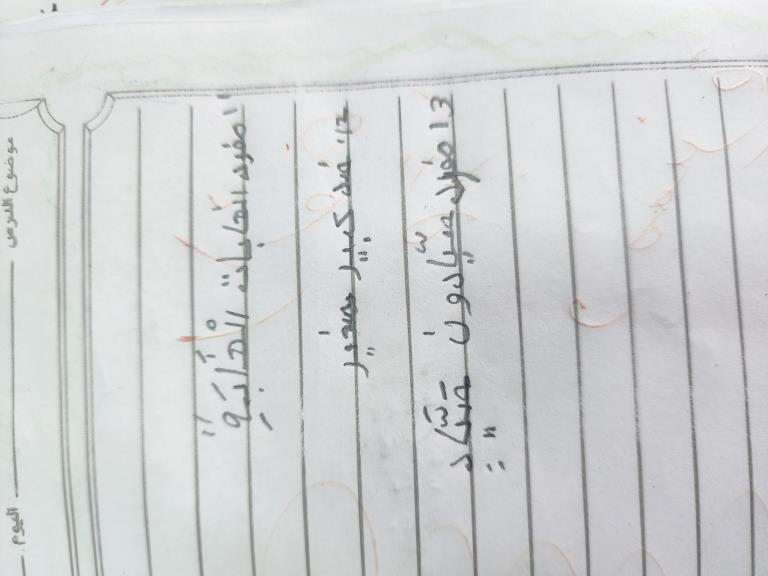 موضوع الدرس
اليوم
١١ مفرد الغابات الْغَابَةُ
١٢ ضد كبير صغير
١٣ مفرد صيّادون صَيَّاد